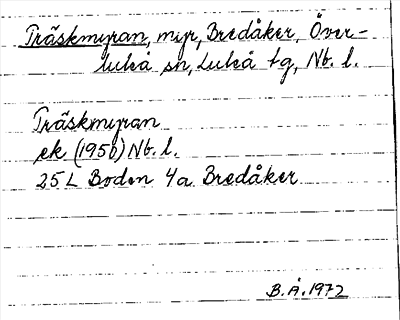 Träskmyran, myr, Bredåker, Över-
luleå sn, Luleå tg, Nb. l.
Träskmyran
ek (1950) Nb. l.
25 L Boden 4a Bredåker
B. Å. 1972